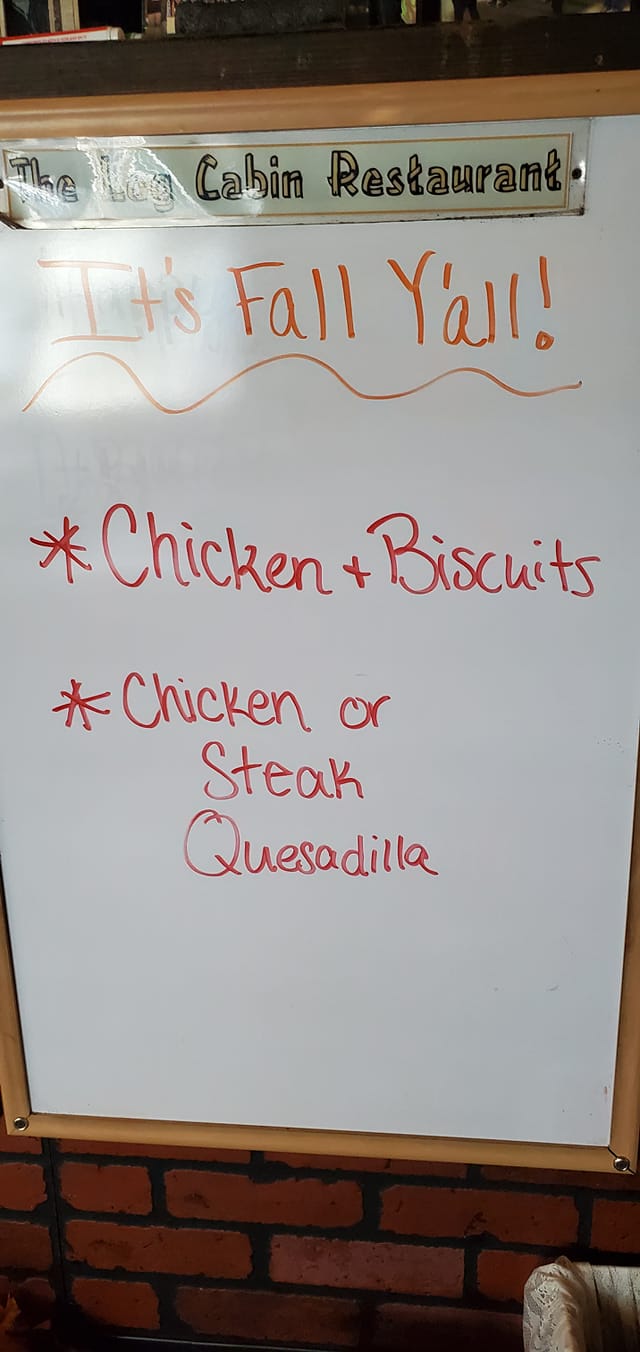 The Log Cabin Restaurant
It's Fall Y'all!
*Chicken + Biscuits
*Chicken or
Steak
Quesadilla